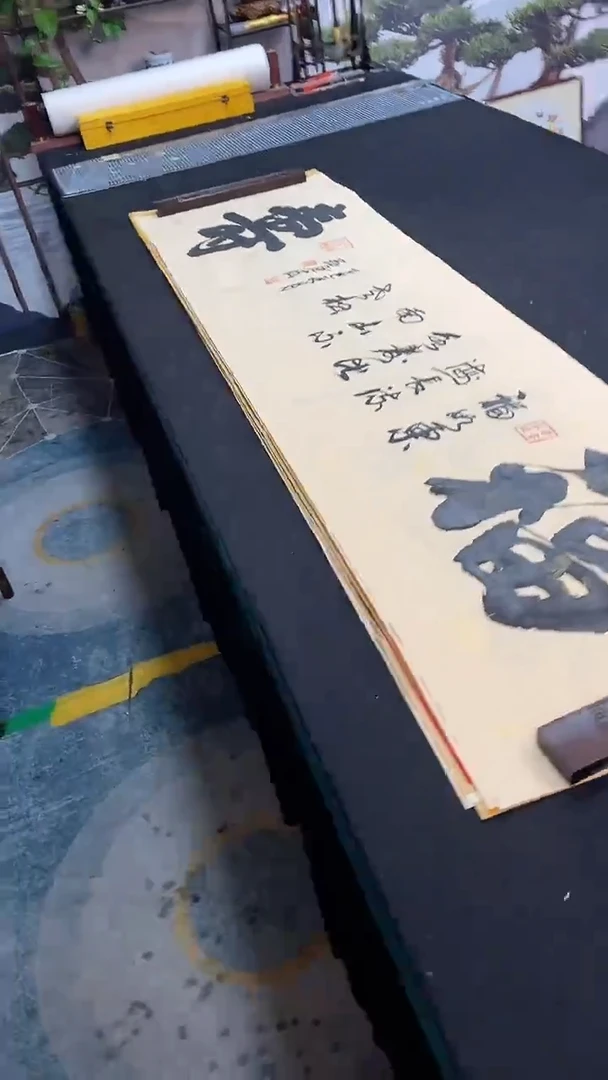 福
福如東
海長流
水壽比
南山不
老松
壽